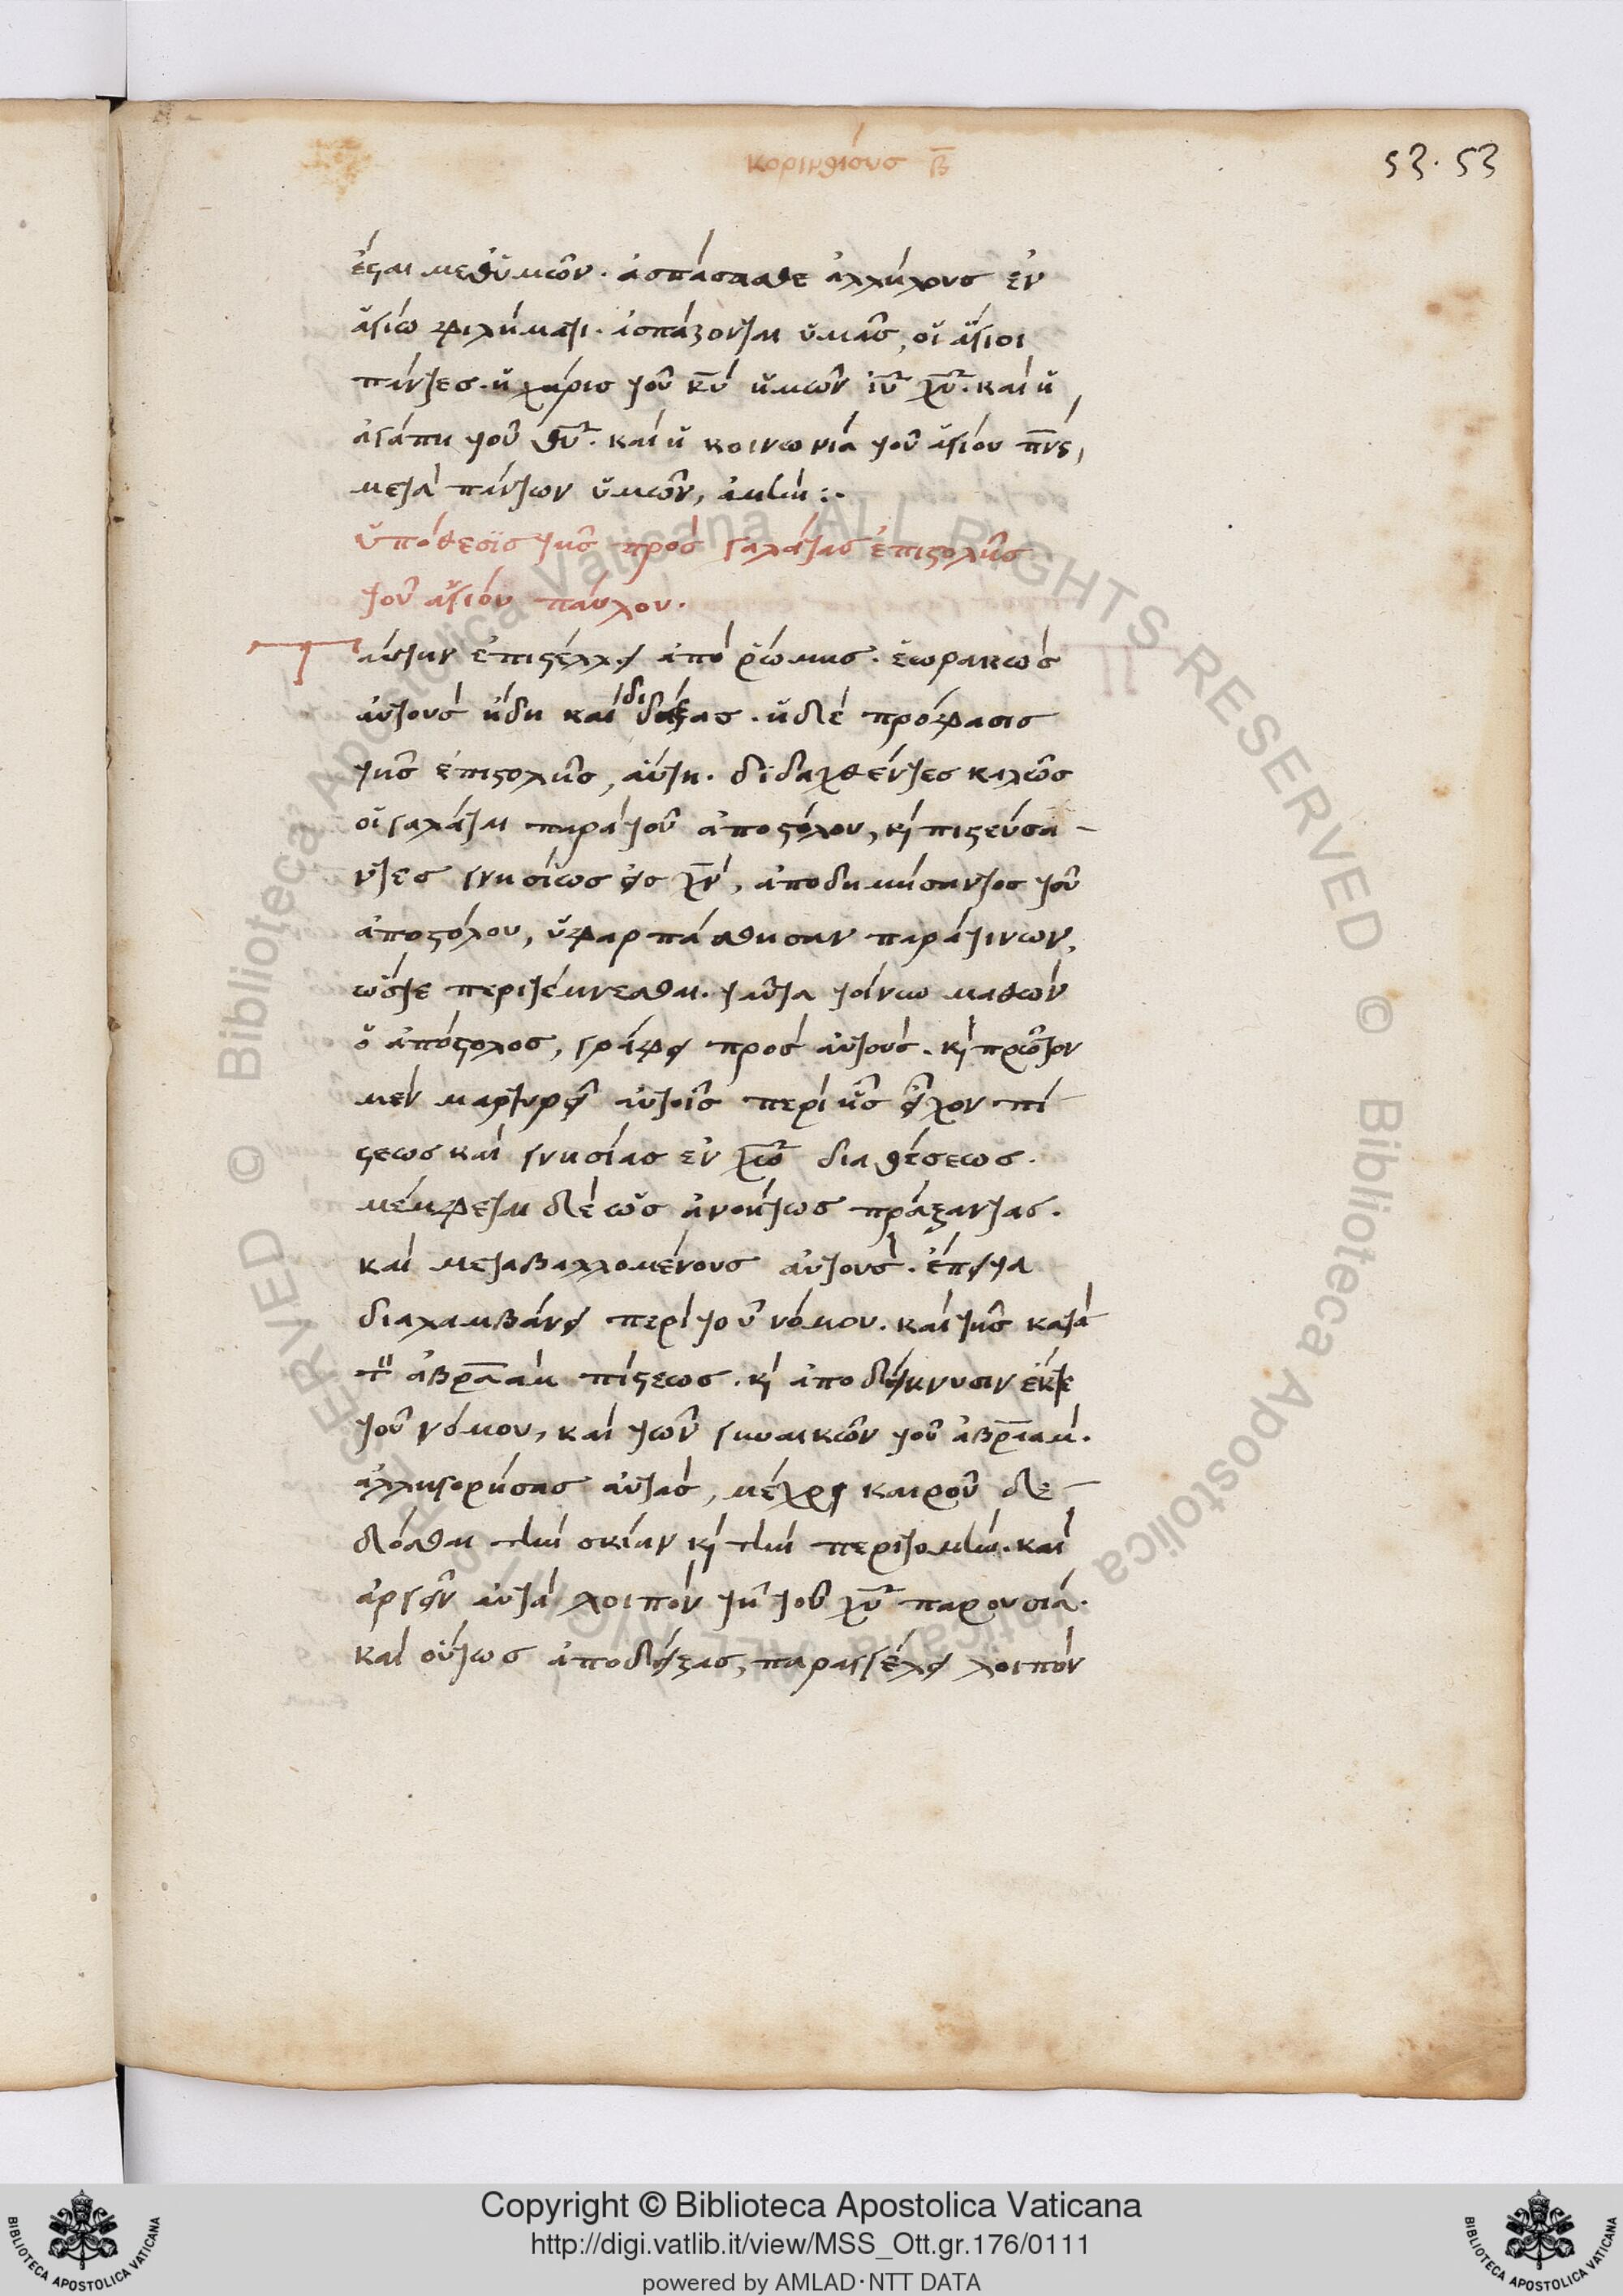 κορινθίους β̅
53. 53
ἔσται μεθ᾽ὑμῶν. ἀσπάσασθε ἀλλήλους ἐν
ἁγίω φιλήματι. ἀσπάζονται ὑμᾶς, οἱ ἅγιοι
πάντες. ἡ χάρις τοῦ κ̅υ̅ ἡμῶν ἰ̅υ̅ χ̅υ̅. καὶ ἡ
ἀγάπη τοῦ θ̅υ̅. καὶ ἡ κοινωνία τοῦ ἁγίου π̅ν̅ς̅,
μετὰ πάντων ὑμῶν, ἀμήν :.
ὑπόθεσϊς τῆς πρὸς γαλάτας ἐπιστολῆς
τοῦ ἁγίου παύλου.
Ταύτην ἐπιστέλλει ἀπὸ ῥώμης. ἑωρακὼς
αὐτοὺς ἤδη καὶ διδάξας. ἡ δὲ πρόφασις
τῆς ἐπιστολῆς, αὕτη. διδαχθέντες καλῶς
οἱ γαλάται παρὰ τοῦ ἀποστόλου, κ̀ πιστεύσα-
ντες γνησίως εἰς χ̅ν̅, ἀποδημήσαντος τοῦ
ἀποστόλου, ὑφαρπάσθησαν παράτινων,
ὥστε περιτέμνεσθαι. ταῦτα τοίνυν μαθὼν
ὁ ἀπόστολος, γράφει πρὸς αὐτούς. κ̀ πρῶτον
μὲν μαρτυρεῖ αὐτοῖς περὶ ἧς εἶχον πί
στεως καὶ γνησίας ἐν χ̅ω̅ διαθέσεως.
μέμφεται δὲ ὡς ἀνοήτως πράξαντας.
καὶ μεταβαλλομένους αὐτούς. ἔπειτα
διαλαμβάνει περὶ τοῦ νόμου. καὶ τῆς κατὰ
τὸν ἀβραὰμ πίστεως. κ̀ ἀποδείκνυσιν ἔκτε
τοῦ νόμου, καὶ τῶν γυναικῶν τοῦ ἀβραάμ.
ἀλληγορήσας αὐτάς, μέχρι καιροῦ δε-
δόσθαι τὴν σκίαν κ̀ τὴν περιτομήν. καὶ
ἀργεῖν αὐτὰ λοιπὸν τῆ τοῦ χ̅υ̅ παρουσία.
καὶ οὕτως ἀποδείξας, παραγγέλει λοιπὸν
Copyright © Biblioteca Apostolica Vaticana
http://digi.vatlib.it/view/MSS_Ott.gr.176/0111
powered by AMLAD·NTT DATA